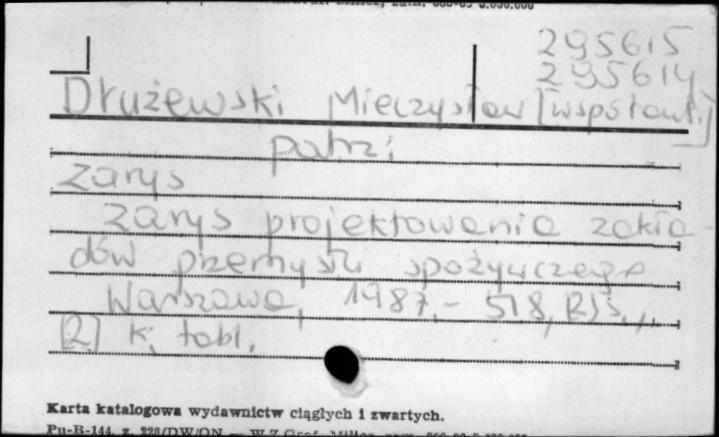 295615
295614
Drużewski Mieczysław [współaut.]
patrz:
Zarys
Zarys projektowania zakła-
dów przemysłu spożywczego
Warszawa, 1987.- 518, [2] s.,
[2] k. tabl.
Karta katalogowa wydawnictw ciągłych i zwartych.
Pu-B-144, z. 228/DW/ON — W.Z.Graf.